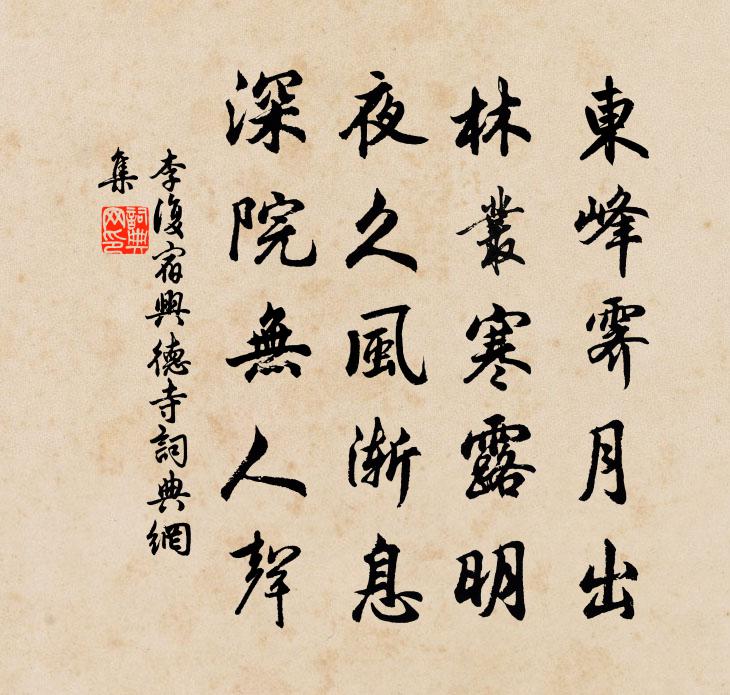 東峰霽月出
林叢寒露明
夜久風漸息
深院無人聲
李復宿興德寺詞典網
集
詞典
网印